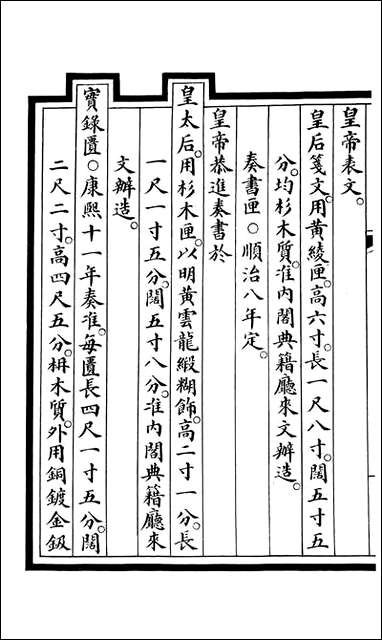 皇帝表文。
皇后箋文。用黃綾匣。高六寸。長一尺八寸。闊五寸五
分。均杉木質。准內閣典籍廳來文辦造。
奏書匣○順治八年定。
皇帝恭進奏書於
皇太后。用杉木匣。以明黃雲龍緞糊飾。高二寸一分。長
一尺一寸五分。闊五寸八分。准內閣典籍廳來
文辦造。
寶錄匱○康熙十一年奏准。每匱長四尺一寸五分。闊
二尺二寸。高四尺五分。枏木質。外用銅鍍金釵